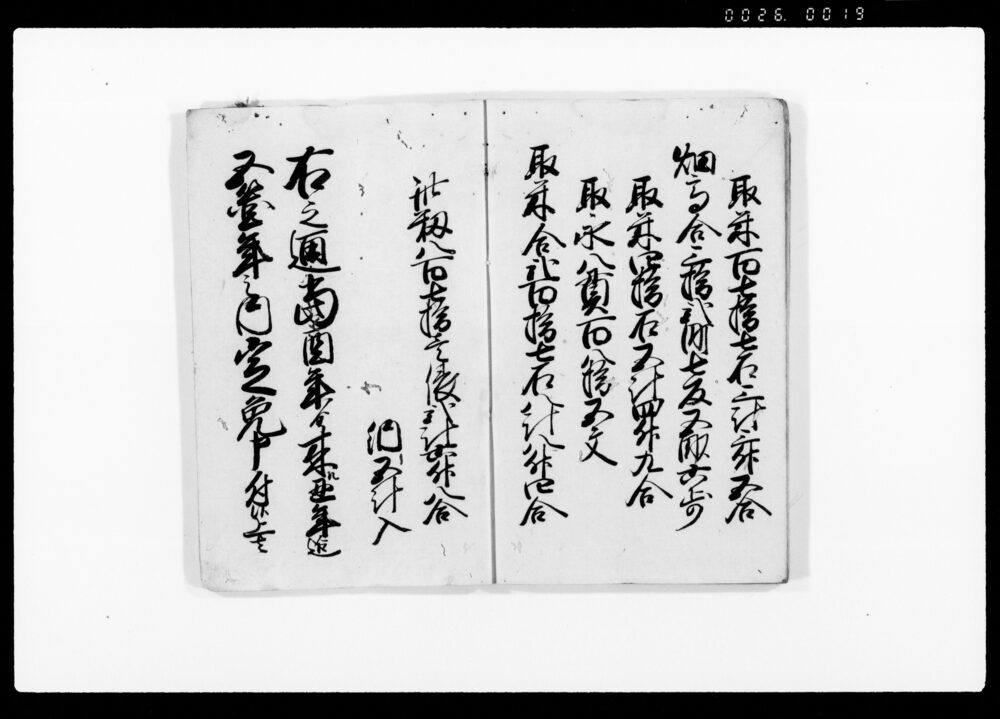 0026.0019
取米百七拾七石二斗六升五合
畑高合六拾弐町七反五畝廿六歩
取米四拾石五斗四升九合
取永八貫百八拾五文
取米合弐百拾七石八斗八升四合
此籾八百七拾壱俵弐斗四升八合
但五斗入
右之通当酉年ゟ来ル丑年迄
五箇年之間定免申付候上者